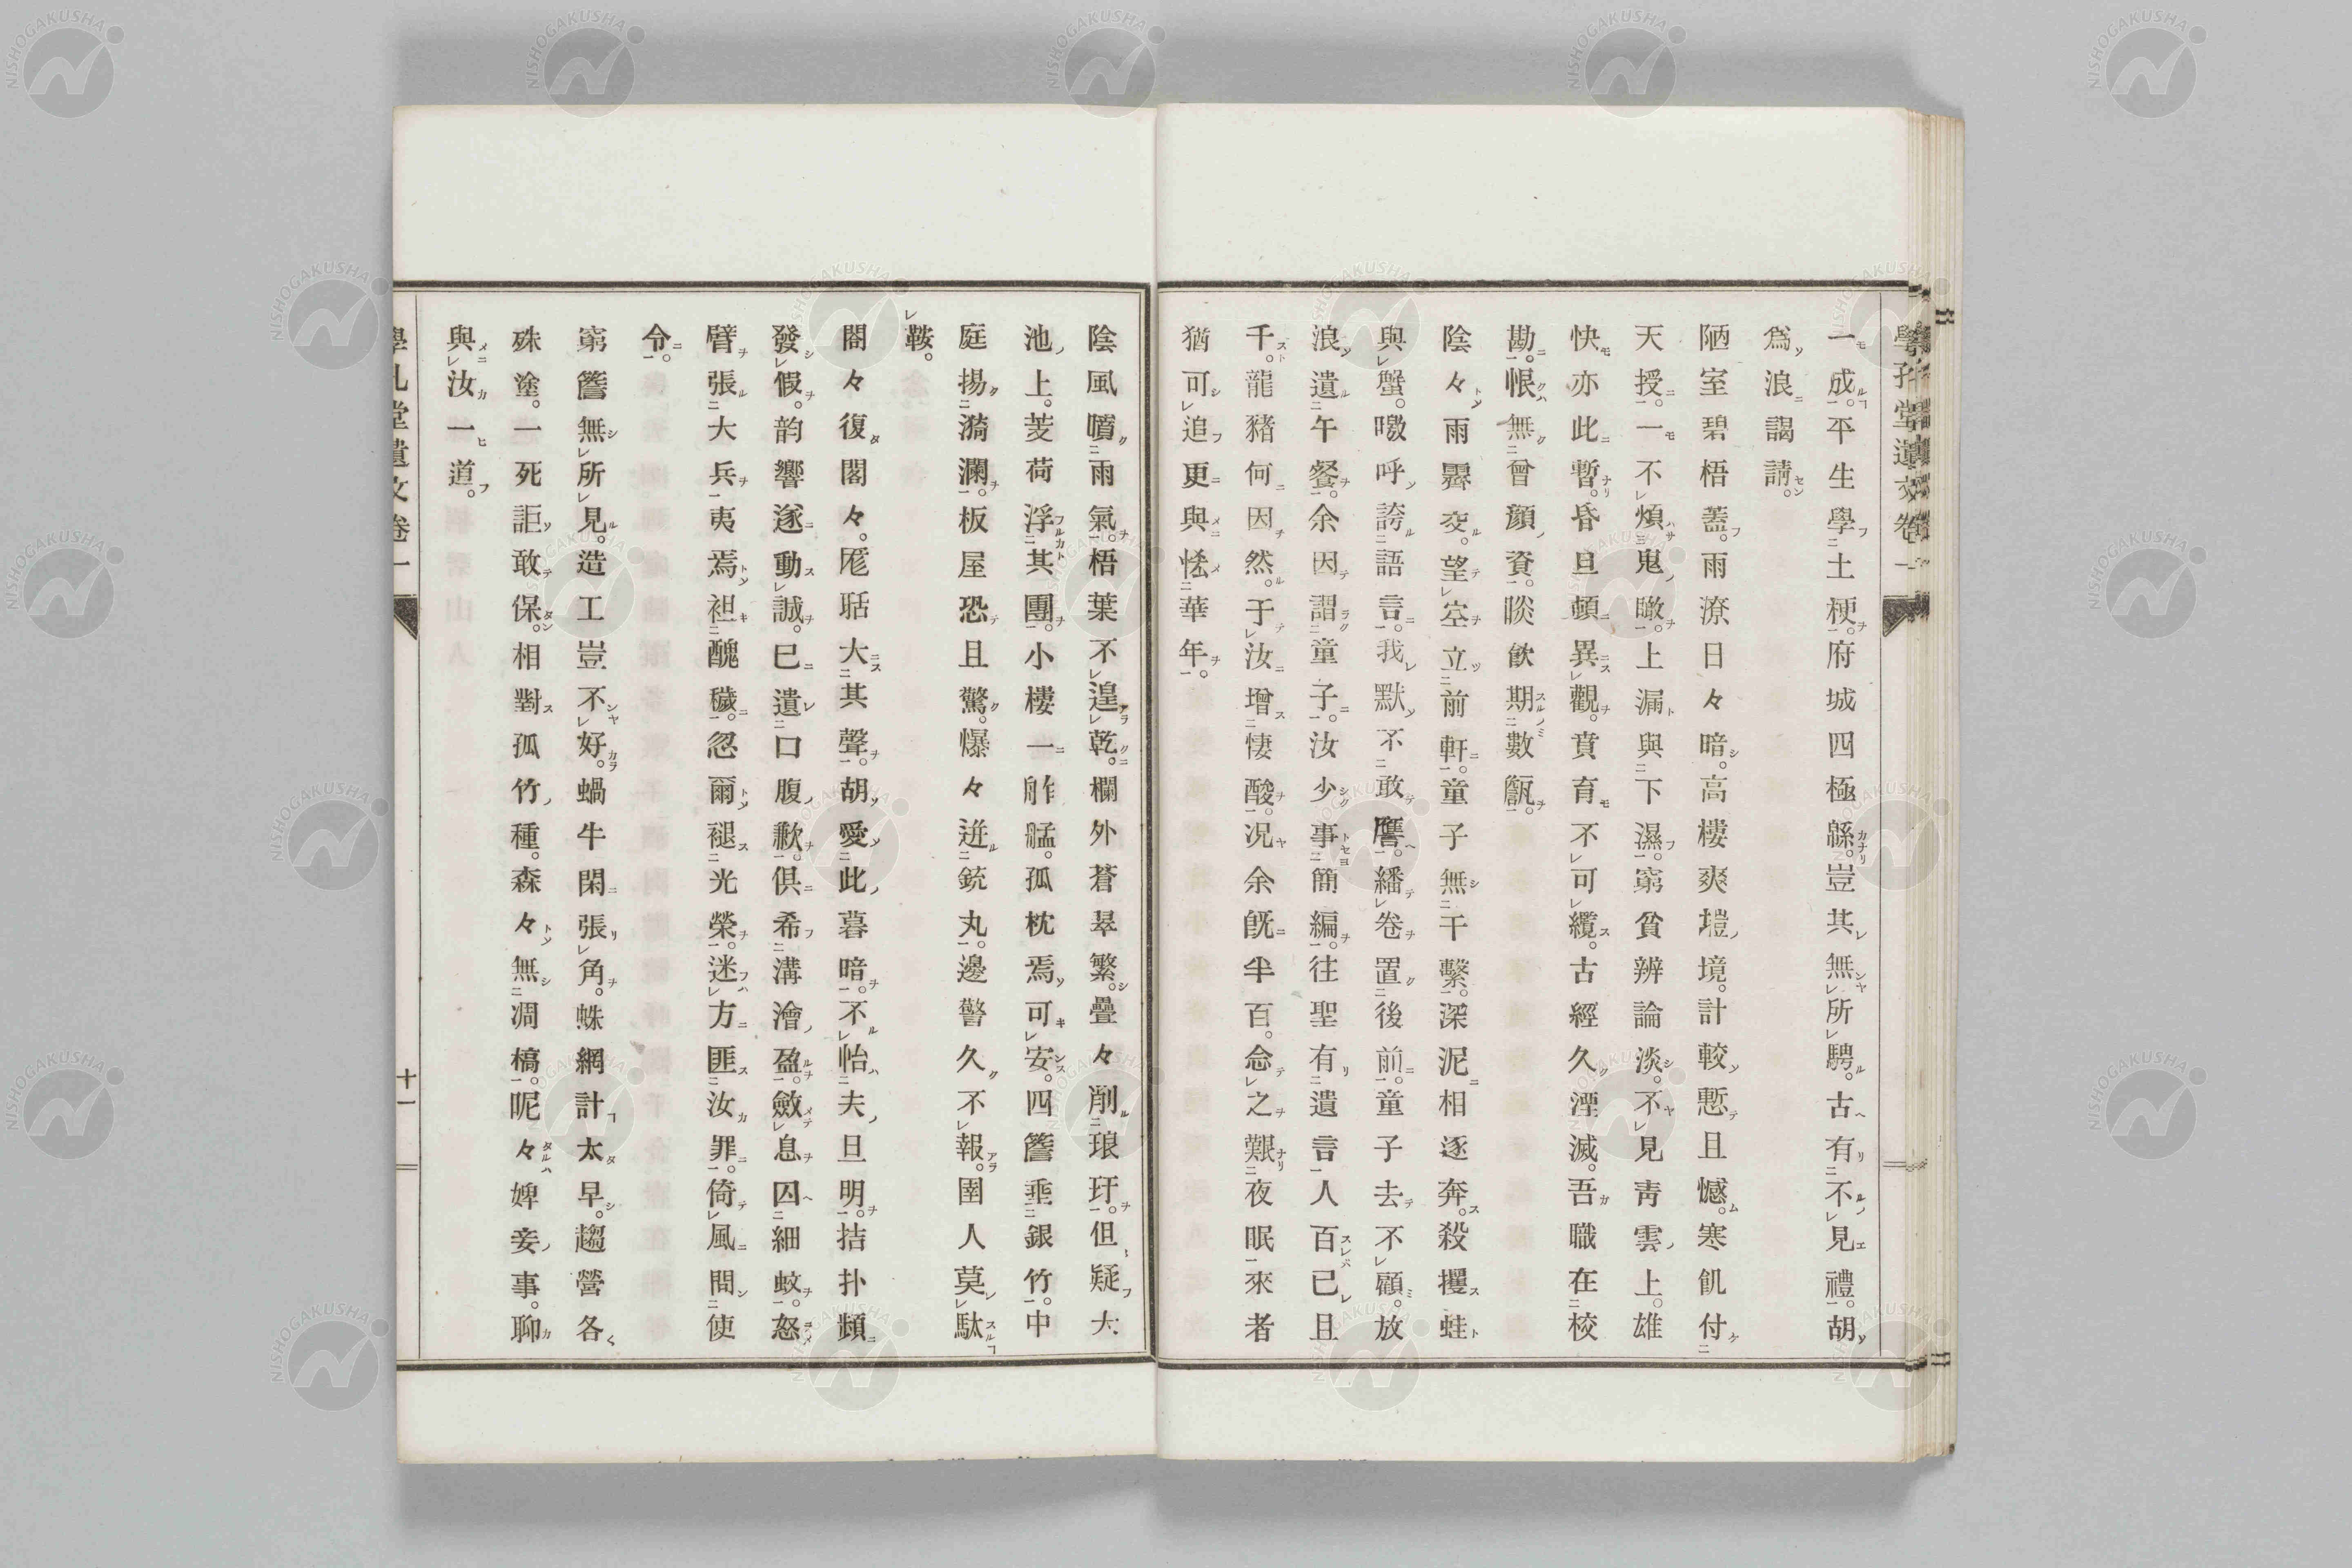 一成。平生學土梗。府城四極緜。豈其無所騁。古有不見禮。胡
爲浪謁請。
陋室碧梧蓋。雨潦日々暗。高樓爽塏境。計較慙且憾。寒飢付
天授。一不煩鬼瞰。上漏與下濕。窮貧辨論淡。不見靑雲上。雄
快亦此暫。昏旦頓異觀。賁育不可纜。古經久湮滅。吾職在校
勘。恨無曾顏資。啖飮期數甔。
陰々雨霽交。望空立前軒。童子無干繫。深泥相逐奔。殺攫蛙
與蟹。噭呼誇語言。我默不敢譍。繙卷置後前。童子去不顧。放
浪遺午餐。余因謂童子。汝少事簡編。往聖有遺言。人百已且
千。龍豬何因然。于汝增悽酸。况余旣半百。念之艱夜眠。來者
猶可追。更與恡華年。
陰風噴雨氣。梧葉不遑乾。欄外蒼翠繁。疊々削琅玕。但疑大
池上。菱荷浮其團。小樓一舴艋。孤枕焉可安。四簷垂銀竹。中
庭揚漪瀾。板屋恐且驚。爆々迸銃丸。邊警久不報。圉人莫駄
鞍。
閤々復閣々。厖聒大其聲。胡愛此暮暗。不怡夫旦明。拮扑頻
發假。韵響逐動誠。巳遺口腹歉。俱希溝澮盈。斂息囚細蚊。怒
臂張大兵。夷焉袒醜穢。忽爾褪光榮。迷方匪汝罪。倚風問使
令。
窮簷無所見。造工豈不好。蝸牛閑張角。蛛網計太早。趨營各
殊塗。一死詎敢保。相對孤竹種。森々無凋槁。呢々婢妾事。聊
與汝一道。
學孔堂遺文卷一
十一